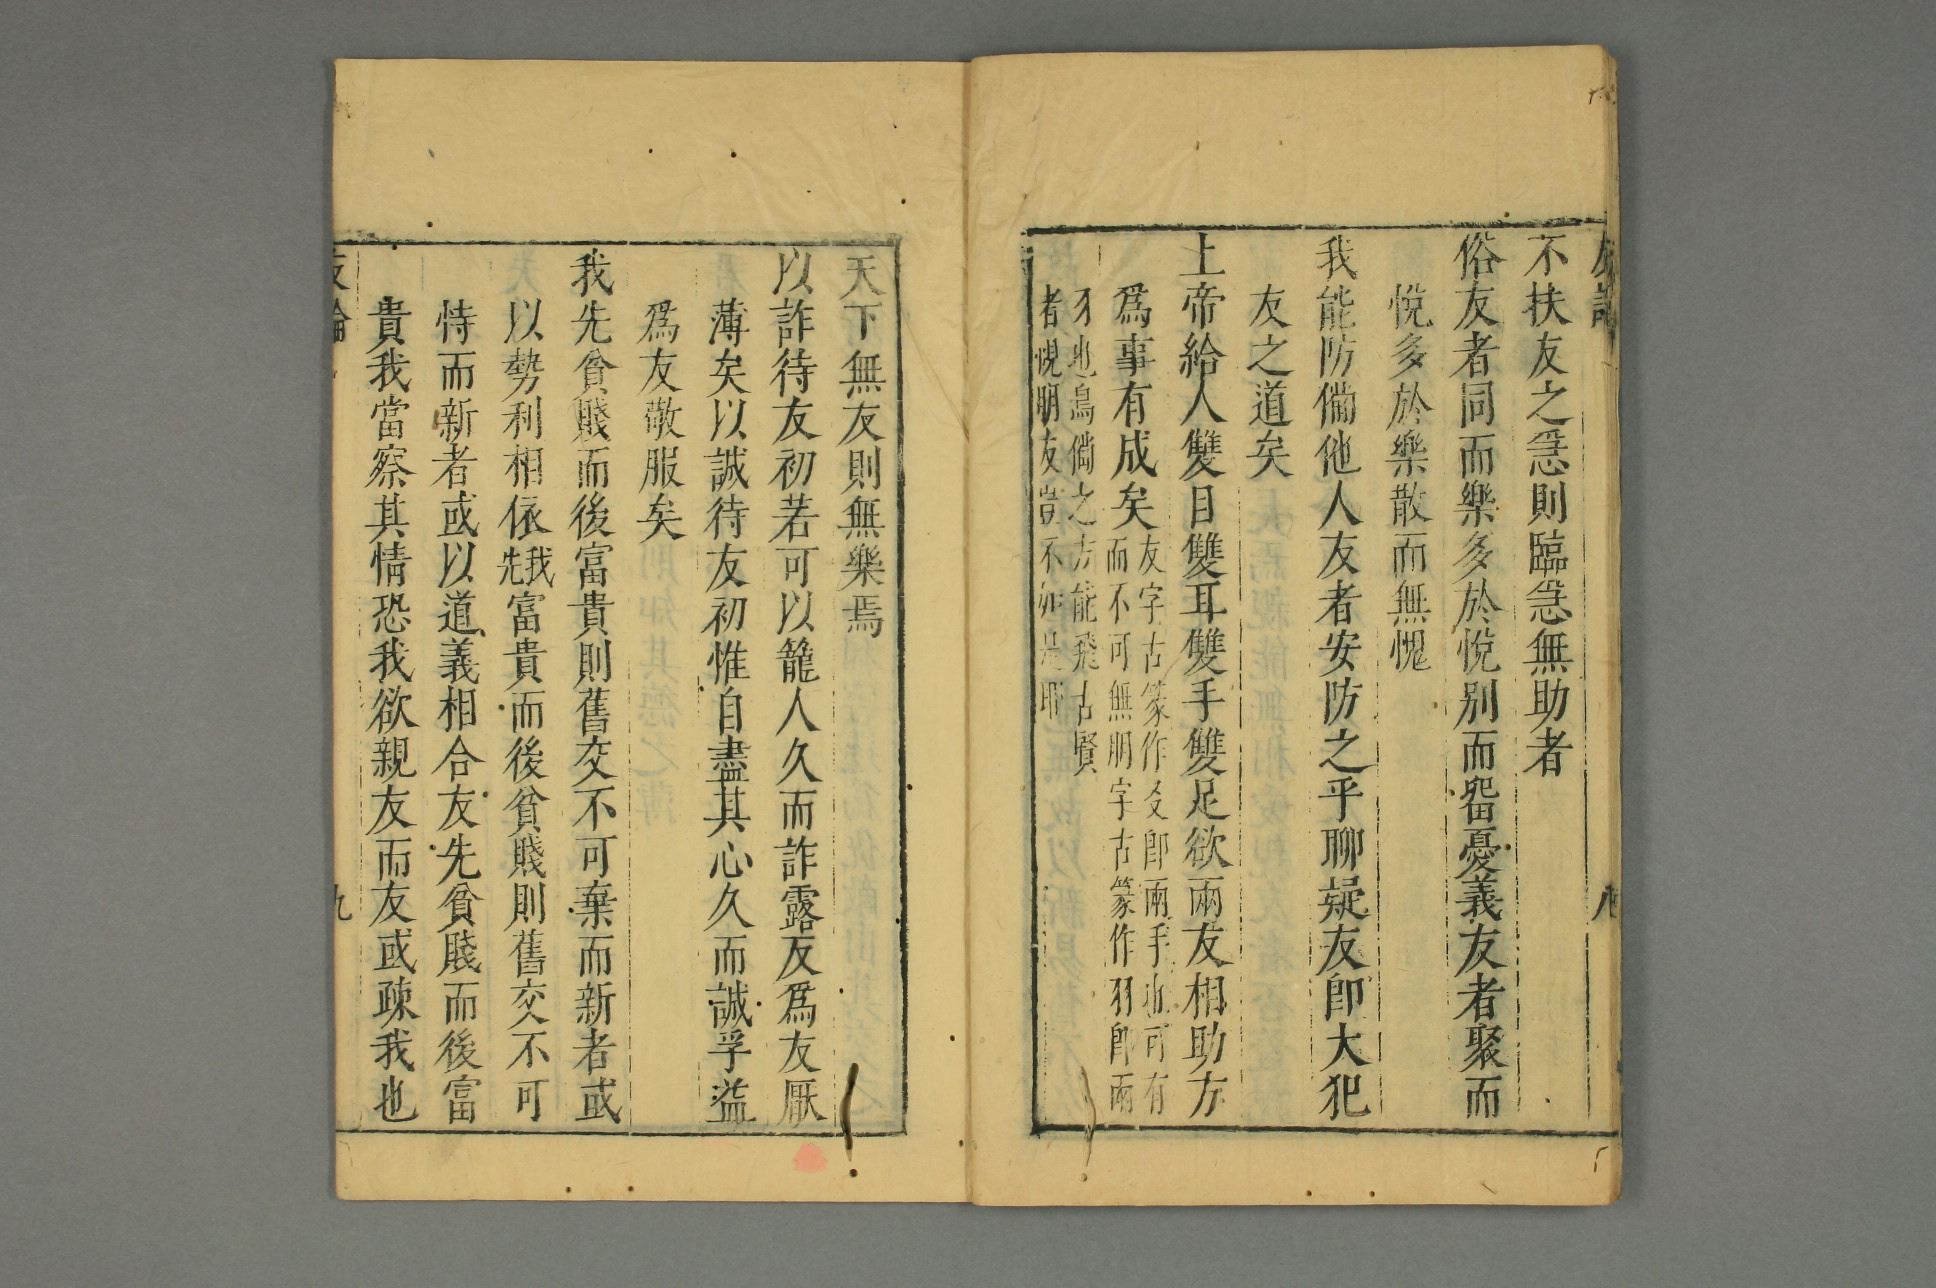 友論
八
不扶友之急則臨急無助者
俗友者同而樂多於悅別而畱憂義友者聚而
悅多於樂散而無愧
我能防備他人友者安防之乎聊疑友卽大犯
友之道矣
上帝給人雙目雙耳雙手雙足欲兩友相助方
爲事有成矣
友字古篆作㕛卽兩手也可有
而不可無朋字古篆作羽卽兩
習也鳥備之方能飛古賢
者視朋友豈不如是耶
天下無友則無樂焉
以詐待友初若可以籠人久而詐露反爲友厭
薄矣以誠待友初惟自盡其心久而誠孚益
爲友敬服矣
我先貧賤而後富貴則舊交不可棄而新者或
以勢利相依我先富貴而後貧賤則舊交不可
恃而新者或以道義相合友先貧賤而後富
貴我當察其情恐我欲親友而友或疎我也
友論
九